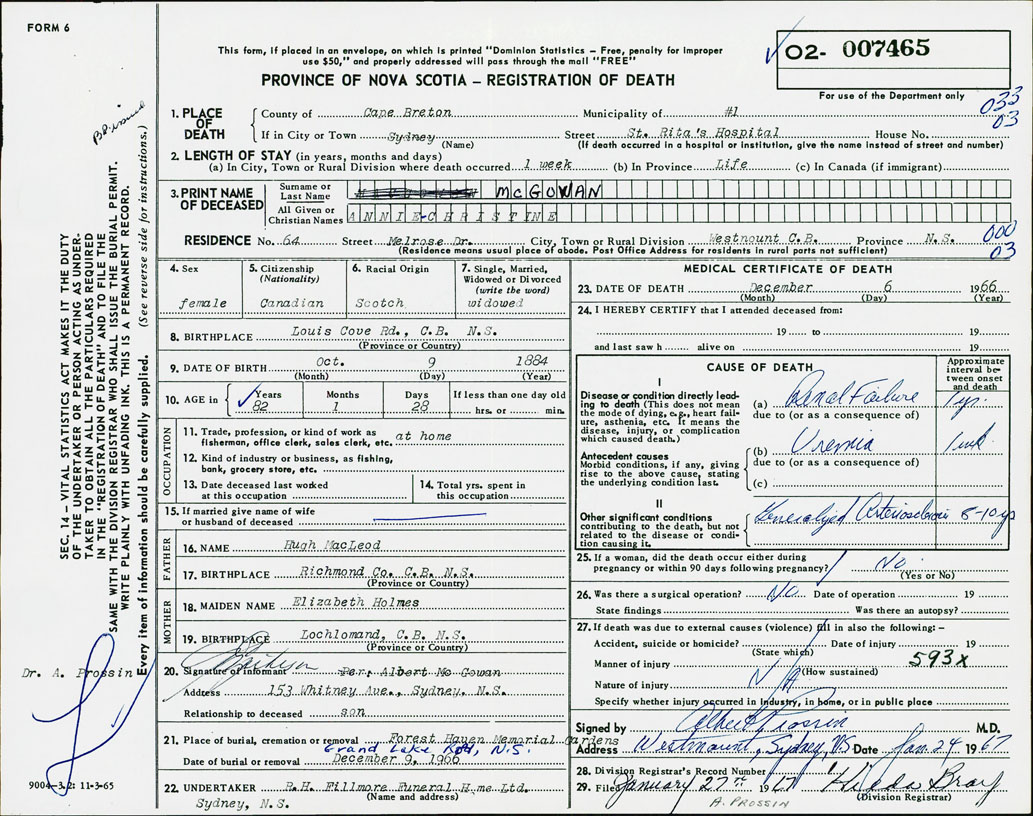 FORM 6
This form, if placed in an envelope, on which is printed "Dominion Statistics — Free, penalty for improper
use $50," and properly addressed will pass through the mail "FREE"
PROVINCE OF NOVA SCOTIA — REGISTRATION OF DEATH
O2- 007465
For use of the Department only
033
03
1. PLACE OF DEATH County of Cape Breton Municipality of #1
If in City or Town Sydney (Name) Street St. Rita's Hospital House No.
(If death occurred in a hospital or institution, give the name instead of street and number)
2. LENGTH OF STAY (in years, months and days)
(a) In City, Town or Rural Division where death occurred 1 week (b) In Province Life (c) In Canada (if immigrant)
3. PRINT NAME OF DECEASED Surname or Last Name McGOWAN
All Given or Christian Names ANNIE-CHRISTINE
RESIDENCE No. 64 Street Melrose Dr. City, Town or Rural Division Westnount C.B. Province N.S.
(Residence means usual place of abode. Post Office Address for residents in rural parts not sufficient)
000
03
4. Sex female
5. Citizenship (Nationality) Canadian
6. Racial Origin Scotch
7. Single, Married, Widowed or Divorced (write the word) widowed
8. BIRTHPLACE Louis Cove Rd., C.B. N.S.
(Province or Country)
9. DATE OF BIRTH Oct. 9 1884
(Month) (Day) (Year)
10. AGE in Years 82 Months 1 Days 28 If less than one day old hrs. or min.
OCCUPATION
11. Trade, profession, or kind of work as fisherman, office clerk, sales clerk, etc. at home
12. Kind of industry or business, as fishing, bank, grocery store, etc.
13. Date deceased last worked at this occupation
14. Total yrs. spent in this occupation
15. If married give name of wife or husband of deceased
FATHER
16. NAME Hugh MacLeod
17. BIRTHPLACE Richmond Co. C.B. N.S.
(Province or Country)
MOTHER
18. MAIDEN NAME Elizabeth Holmes
19. BIRTHPLACE Lochlomand, C.B. N.S.
(Province or Country)
20. Signature of informant Per; Albert Mc Gowan
Address 153 Whitney Ave., Sydney, N.S.
Relationship to deceased son
21. Place of burial, cremation or removal Forest Haven Memorial Gardens
Grand Lake Rd, N.S.
Date of burial or removal December 9, 1966
22. UNDERTAKER R.H. Fillmore Funeral H me Ltd.
(Name and address)
Sydney, N.S.
MEDICAL CERTIFICATE OF DEATH
23. DATE OF DEATH December 6 1966
(Month) (Day) (Year)
24. I HEREBY CERTIFY that I attended deceased from:
19 to 19
and last saw h alive on 19
CAUSE OF DEATH
Approximate interval between onset and death
I
Disease or condition directly leading to death (This does not mean the mode of dying, e.g., heart failure, asthenia, etc. It means the disease, injury, or complication which caused death.)
(a) Renal Failure 1 yr.
due to (or as a consequence of)
Antecedent causes
Morbid conditions, if any, giving rise to the above cause, stating the underlying condition last.
(b) Uremia 1 wk
due to (or as a consequence of)
(c)
II
Other significant conditions contributing to the death, but not related to the disease or condition causing it.
Generalized Arteriosclerosis 5-10 yr
25. If a woman, did the death occur either during pregnancy or within 90 days following pregnancy? No
(Yes or No)
26. Was there a surgical operation? No Date of operation 19
State findings Was there an autopsy?
27. If death was due to external causes (violence) fill in also the following:-
Accident, suicide or homicide? Date of injury 19
(State which)
593x
Manner of injury (How sustained)
N/A
Nature of injury
Specify whether injury occurred in industry, in home, or in public place
Signed by Albert Prossin M.D.
Address Westmount, Sydney, N.S. Date Jan. 24 1967
28. Division Registrar's Record Number
29. Filed January 27th 1967
(Division Registrar)
A. PROSSIN
SEC. 14 — VITAL STATISTICS ACT MAKES IT THE DUTY
OF THE UNDERTAKER OR PERSON ACTING AS UNDER-
TAKER TO OBTAIN ALL THE PARTICULARS REQUIRED
IN THE "REGISTRATION OF DEATH" AND TO FILE THE
SAME WITH THE DIVISION REGISTRAR WHO SHALL ISSUE THE BURIAL PERMIT.
WRITE PLAINLY WITH UNFADING INK. THIS IS A PERMANENT RECORD.
Every item of information should be carefully supplied. (See reverse side for instructions.)
Dr. A. Prossin
9004-3.2: 11-3-65